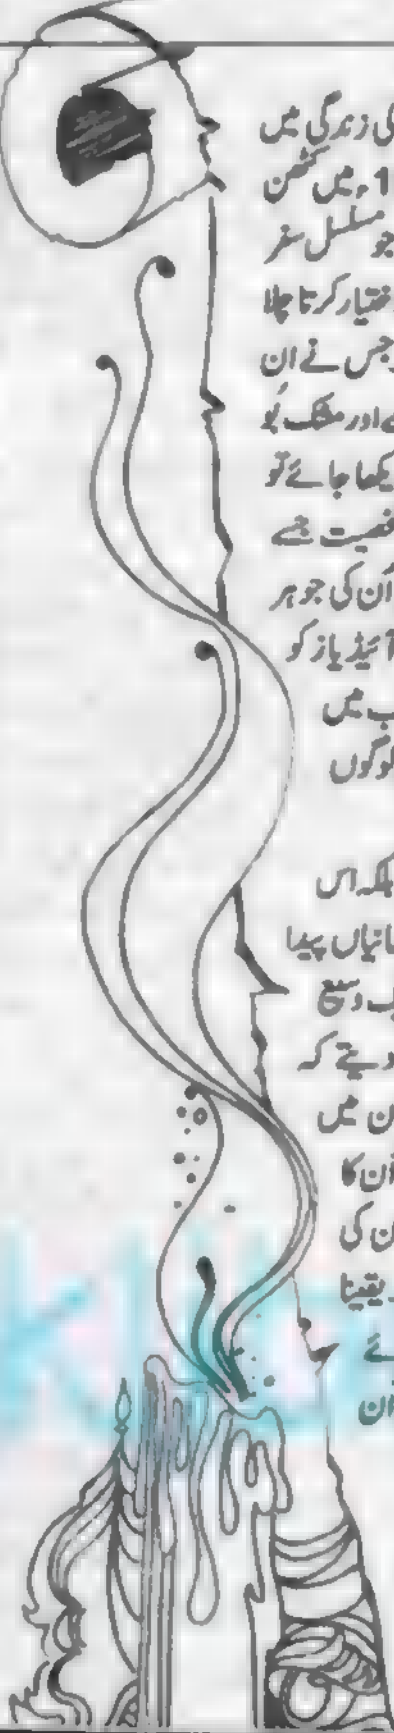 کی زندگی میں
1ء میں کٹھن
جو مسلسل سفر
ختیار کرتا چلا
جس نے ان
ے اور مشک بُو
یکھا جائے تو
خصیت جسے
اُن کی جوہر
آئیڈیاز کو
ب میں
لوگوں
بلکہ اس
انیاں پیدا
ب وسیع
دیتے کہ
ن میں
اُن کا
ن کی
یقینا
ئے
ان